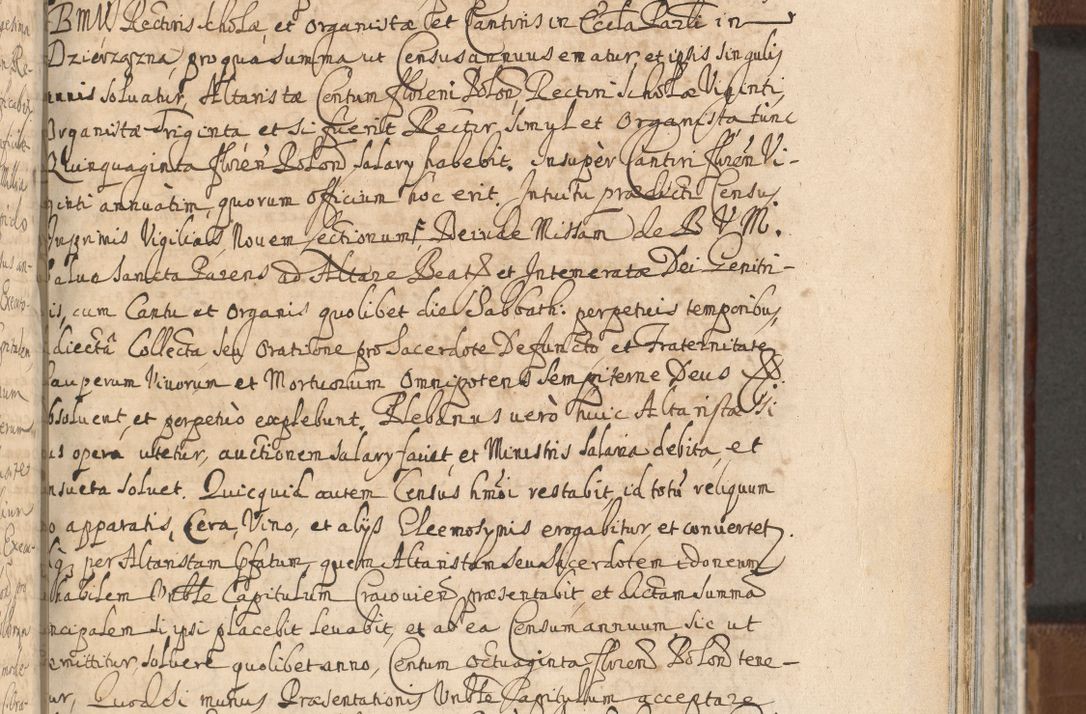 BMV Rectoris scholæ, et Organistæ et Cantoris in Eccla Parli in
Dzierązna, pro qua summa ut Census annuus ematur, et ipsis singulis
annis soluatur, Altaristæ Centum floreni Polon, Rectori Scholæ Viginti,
Organistæ Triginta et si fuerit Rector simul et Organista tunc
Quinquaginta floren Polon salary habebit. Insuper Cantori floren Vi-
ginti annuatim, quorum officium hoc erit. Intuitu prædicti Census
Inprimis Vigilias Nouem Lectionum, Deinde Missam de B V M.
Salua Sancta Parens ad Altare Beatæ et Intemeratæ Dei Genitri-
cis, cum Cantu et Organis quolibet die Sabbath: perpetuis temporibus,
adiectâ Collecta seu Oratione pro Sacerdote Defuncto et Fraternitate
Pauperum Viuorum et Mortuorum Omnipotens sempiterne Deus
absoluent, et perpetuò explebunt. Plebanus verò huic Altaristæ si
eius opera utetur, auctionem salary faciet, et Ministris salaria debita, et
consueta soluet. Quicquid autem Census hmõi restabit, id totũ reliquum
pro apparatis, Cera, Vino, et alijs Eleemosynis erogabitur, et conuertet.
per Altaristam quem Altaristam seu Sacerdotem idoneum
habilem Vnble Capitulum Cracouien præsentabit et dictam summã
principalem si ipsi placebit leuabit, et ab ea Censum annuum sic ut
remittitur, soluere quolibet anno, Centum Octuaginta floren Polon tene-
tur, Quod si munus Præsentationis Vnble Capitulum acceptare